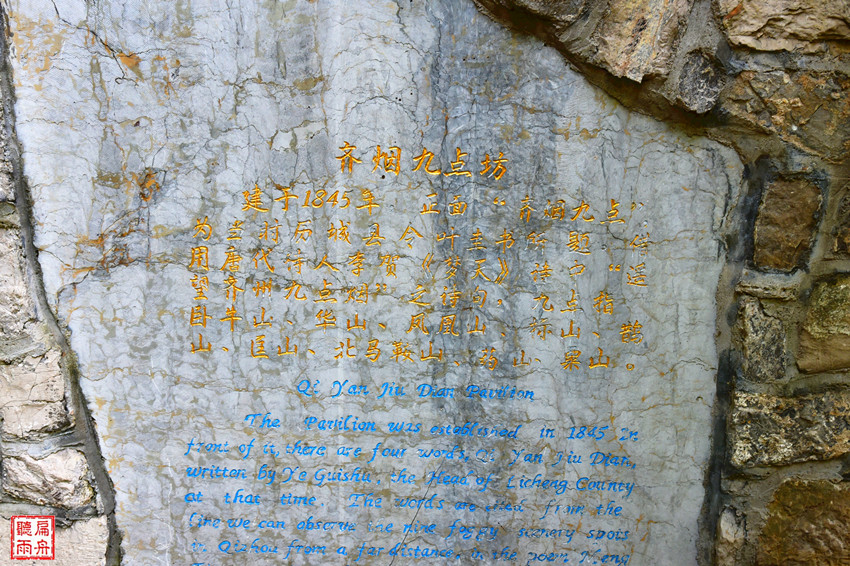 齐烟九点坊
建于1845年 正面“齐烟九点”
为当时历城县令叶圭书所题。借
用唐代诗人李贺《梦天》诗中“遥
望齐州九点烟”之诗句，九点指
卧牛山、华山、凤凰山、标山、鹊
山、匡山、北马鞍山、药山、粟山。
Qi Yan Jiu Dian Pavilion
The Pavilion was established in 1845 In
front of it, there are four words, Qi Yan Jiu Dian,
written by Ye Guishu, the Head of Licheng County
at that time. The words are cited from the
line we can observe the nine foggy scenery spots
in Qizhou from a far distance, in the poem Meng
扁舟
聽雨